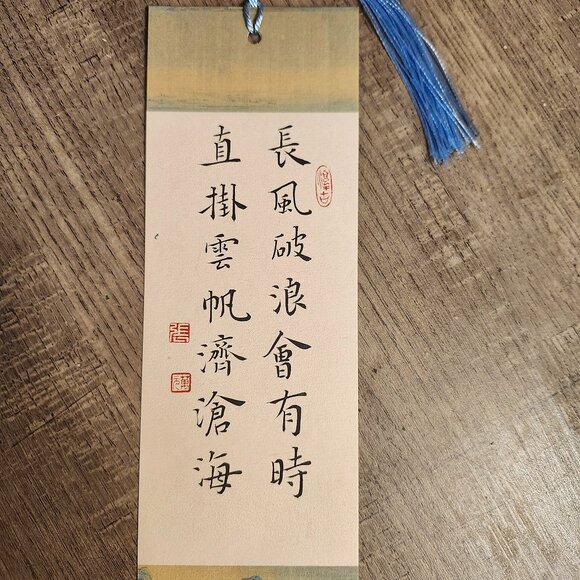 長風破浪會有時
直掛雲帆濟滄海
張